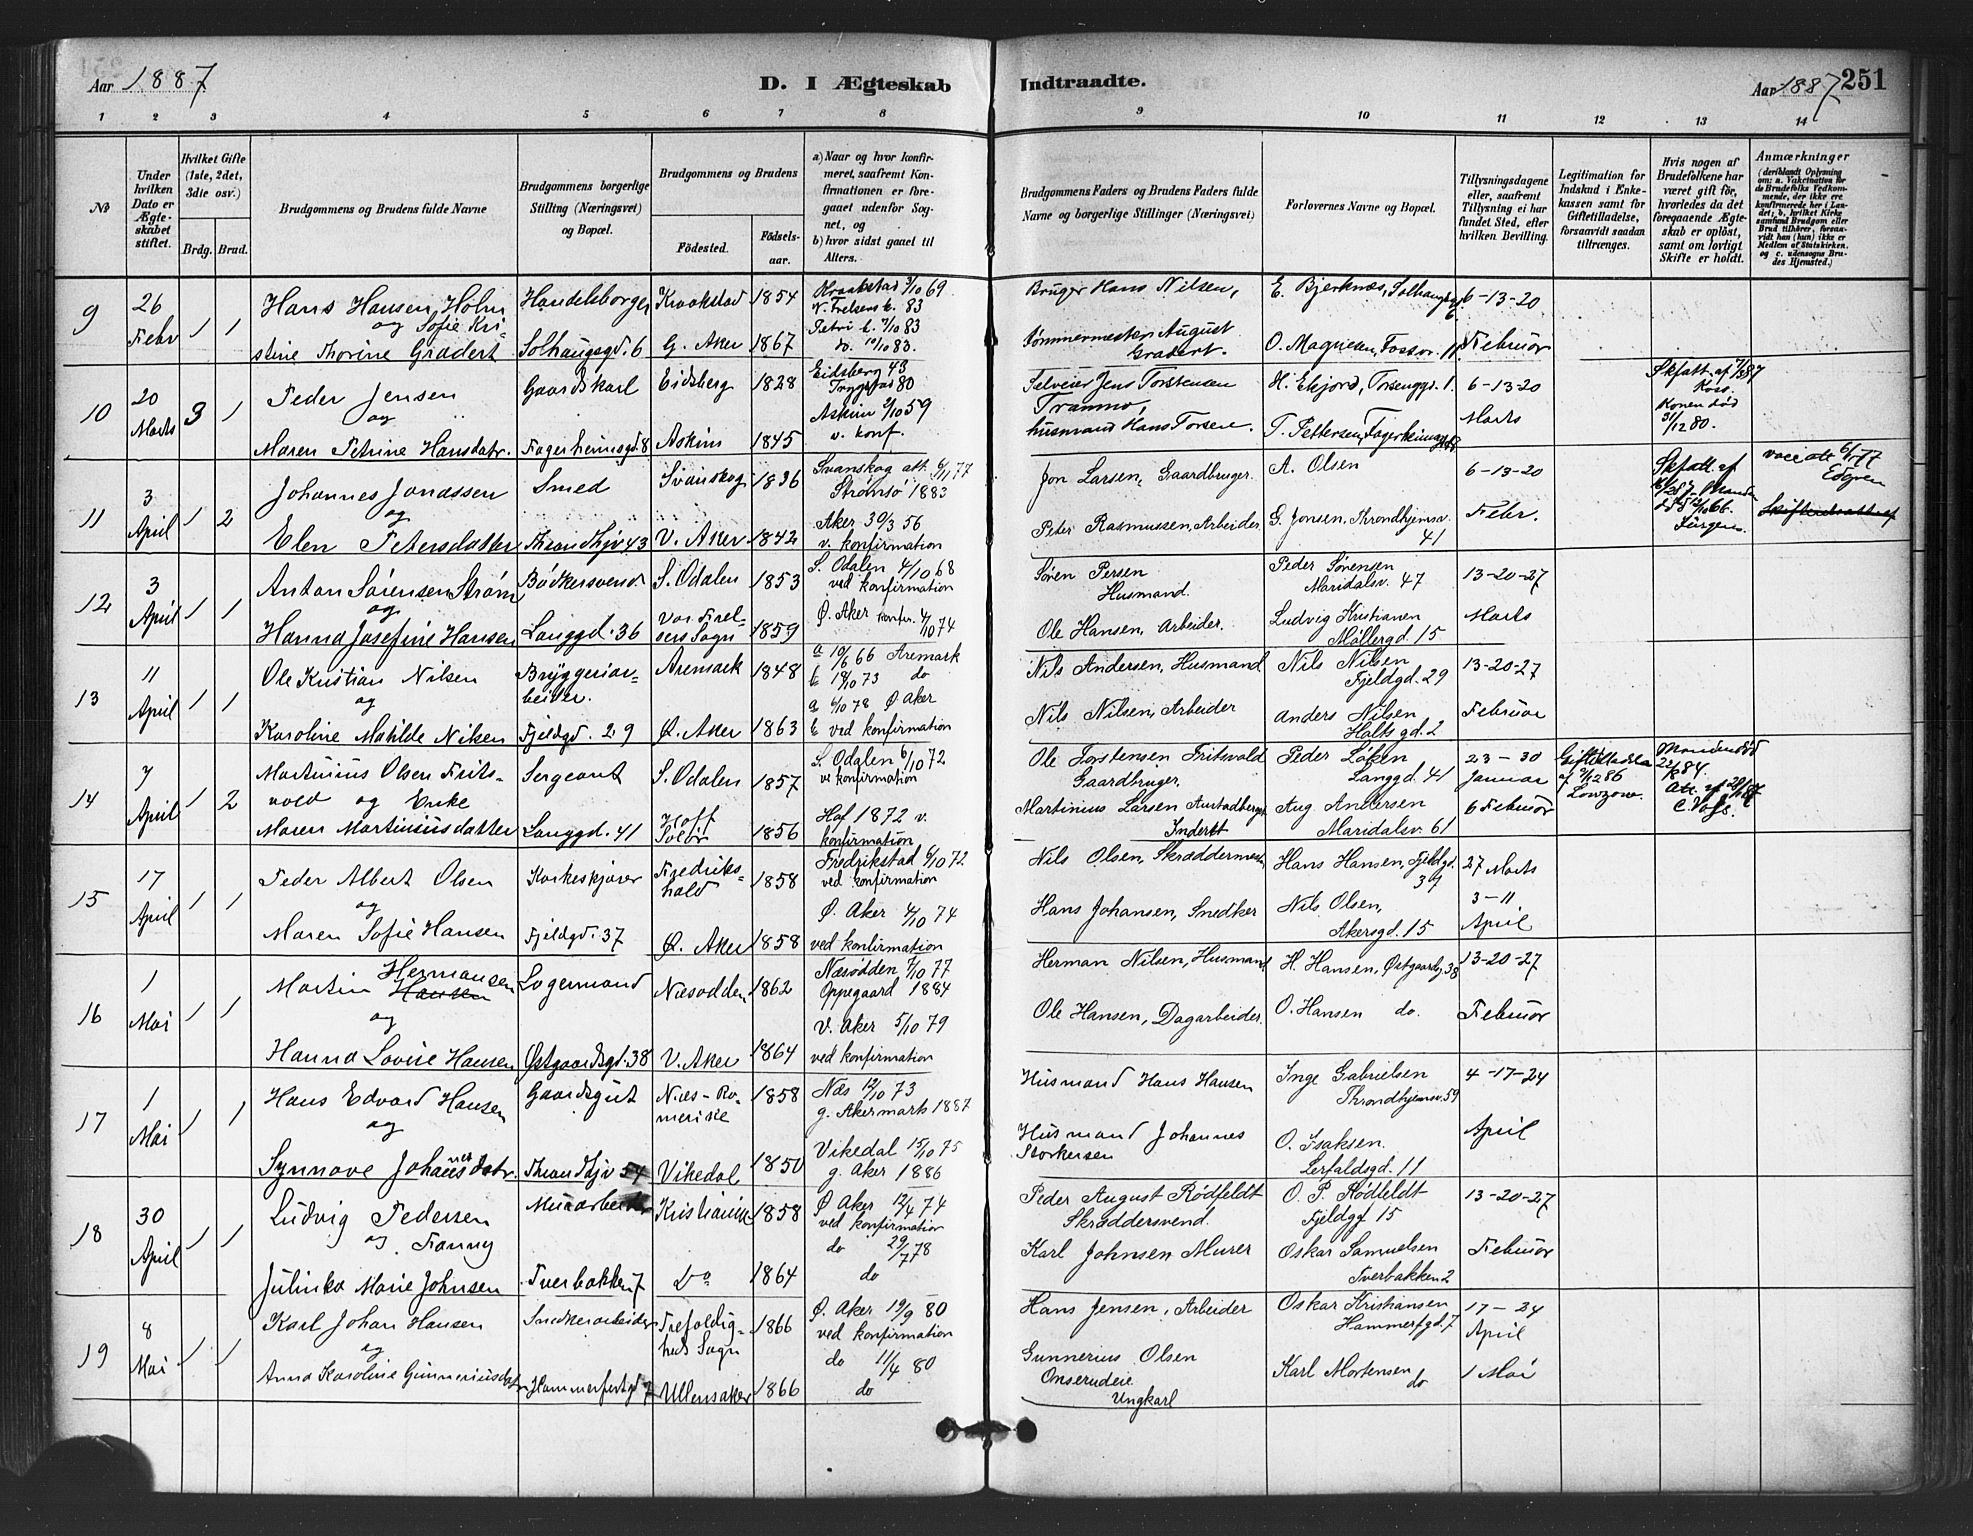 Aar 1887 D. I Ægteskab Indtraadte. Aar 1887 251
1 2 3 4 5 6 7 8 9 10 11 12 13 14
№
Under hvilken Dato er Ægteskabet stiftet.
Hvilket Gifte (1ste, 2det, 3die osv.)
Brdg. Brud.
Brudgommens og Brudens fulde Navne
Brudgommens borgerlige Stilling (Næringsvei) og Bopæl.
Brudgommens og Brudens
Fødested. Fødselsaar.
a) Naar og hvor konfirmeret, saafremt Konfirmationen er foregaaet udenfor Sognet, og
b) hvor sidst gaaet til Alters.
Brudgommens Faders og Brudens Faders fulde Navne og borgerlige Stillinger (Næringsvei)
Forlovernes Navne og Bopæl.
Tillysningsdagene eller, saafremt Tillysning ei har fundet Sted, efter hvilken Bevilling.
Legitimation for Indskud i Enkekassen samt for Giftetilladelse, forsaavidt saadan tiltrænges.
Hvis nogen af Brudefolkene har været gift før, hvorledes da det foregaaende Ægteskab er opløst, samt om lovligt Skifte er holdt.
Anmærkninger (deriblandt Oplysning om: a. Vakcination for de Brudefolks Vedkommende, der ikke ere konfirmerede her i Landet; b. hvilket Kirkesamfund Brudgom eller Brud tilhører, forsaavidt han (hun) ikke er Medlem af Statskirken, og c. udensogns Brudes Hjemsted.)
9 26 Febr 1 1
Hans Hansen Holm
og Sofie Kristine Thorine Gradert
Handelsborger
Solhaugsgd. 6
Kraakstad 1854
G. Aker 1867
Kraakstad 3/10 69
V. Frelsers k. 83
Petri k. 7/10 83
do. 14/10 83.
Bruger Hans Nilsen,
Tømmermester August Gradert.
E. Bjerknæs, Solhaugsgd 6
O. Magnesen, Fossv. 11
6-13-20
Februar
10 20 Marts 3 1
Peder Jensen
og
Maren Petrine Hansdatr.
Gaardskarl
Fagerheimsgd. 8
Eidsberg 1828
Askim 1845
Eidsberg 43
Trygstad 80
Askim 2/10 59
v. konf.
Selveier Jens Torstensen
Trammo,
husmand Hans Torsen.
H. Ekjord, Torsenggd. 1.
T. Pettersen, Fagerheimsgd 8
6-13-20
Marts
Skfatt. af 7/3 87
Koss.
Konen død
31/12 80.
11 3 April 1 2
Johannes Jonassen
og
Elen Petersdatter
Smed
Throndhjv 43
Svanskog 1836
V. Aker 1842
Svanskog att. 6/11 77
Strømsø 1883
Aker 30/3 56
v. konfirmation
Jon Larsen, Gaardbruger.
Peter Rasmussen, Arbeider
A. Olsen
G. Jonsen, Throndhjemsv. 41
6-13-20
Febr.
Skfatt. af
Manden
død 12/10 66.
Jürgens
vacc att 6/1 77
Edgren
Skifteudattest
12 3 April 1 1
Anton Sørensen Strøm
og
Hanna Josefine Hansen
Bødkersvend
Langgd. 36
S. Odalen 1853
Vor Frelsers Sogn 1859
S. Odalen 4/10 68
ved konfirmation
Ø. Aker konfir. 4/10 74
Søren Persen
Husmand.
Ole Hansen, Arbeider.
Peder Sørensen
Maridalsv. 47
Ludvig Kristianen
Møllergd. 15
13-20-27
Marts
13 11 April 1 1
Ole Kristian Nilsen
og
Karoline Matilde Nilsen
Bryggeriarbeider.
Fjeldgd. 29
Aremark 1848
Ø. Aker 1863
a 10/6 66 Aremark
b 19/10 73 do
a 6/10 78 Ø Aker
b ved konfirmation
Nils Andersen, Husmand
Nils Nilsen, Arbeider
Nils Nilsen
Fjeldgd. 29
Anders Nilsen
Holtsgd. 2
13-20-27
Februar
14 7 April 1 2
Martinius Olsen Fritsvold og Enke
Maren Martiniusdatter
Sergeant
Langgd. 41
S. Odalen 1857
Hoff Solør 1856
S. Odalen 6/10 72
ve konfirmation
Hof 1872 v.
konfirmation
Ole Torstensen Fritsvold
Gaardbruger.
Martinius Larsen Austadberget
Inderst
Peder Løken
Langgd. 41
Aug. Andersen
Maridalsv. 61
23-30
Januar
6 Februar
Giftetilladelse
af 9/12 86
Lowzow.
Manden død
22/8 84.
Att. af 29/1 87
C. Vofs.
15 17 April 1 1
Peder Albert Olsen
og
Maren Sofie Hansen
Korkeskjærer
Fjeldgd. 37
Fredrikshald 1858
Ø. Aker 1858
Fredrikstad 6/10 72
ved konfirmation
Ø. Aker 4/10 74
ved konfirmation
Nils Olsen, Skræddermest.
Hans Johansen, Snedker
Hans Hansen, Fjeldgd. 37
Nils Olsen,
Akersgd. 15
27 Marts
3-11
April
16 1 Mai 1 1
Martin Hermansen Hansen
og
Hanna Lovise Hansen
Lagermand
Østgaardsgd. 38
Næsodden 1862
V. Aker 1864
Næsødden 7/10 77
Oppegaard 1884
V. Aker 5/10 79
ved konfirmation
Herman Nilsen, Husmand
Ole Hansen, Dagarbeider.
H. Hansen, Østgaardg. 38
O. Hansen do.
13-20-27
Februar
17 1 Mai 1 1
Hans Edvard Hansen
og
Synnøve Johannesdatr.
Gaardsgut
Throndhjv 54
Næs-Romerike 1858
Vikedal 1850
Næs 12/10 73
g. Aker marts 1887
Vikedal 15/10 75
g. Aker 1886
Husmand Hans Hansen
Husmand Johannes
Storkersen
Inge Gabrielsen
Throndhjemsv. 59
O. Isaksen.
Lerfaldsgd. 11
4-17-24
April
18 30 April 1 1
Ludvig Pedersen
og Fanny
Julinka Marie Johnsen
Murarbeider
Tverbakken 7
Kristiania 1858
Do 1864
Ø Aker 12/4 74
ved konfirmation
do 29/7 78
do
Peder August Rødfeldt
Skræddersvend.
Karl Johnsen Murer
O. P. Rødfeldt
Fjeldgd 15
Oskar Samuelsen
Tverbakken 2
13-20-27
Februar
19 8 Mai 1 1
Karl Johan Hansen
og
Anna Karoline Gunneriusdatr
Snedkerarbeider
Hammerfestgd 7
Trefoldigheds Sogn 1866
Ullensaker 1866
Ø. Aker 19/9 80
ved konfirmation
do 11/4 80
do
Hans Jensen, Arbeider
Gunnerius Olsen
Onserudeie
Ungkarl
Oskar Kristiansen
Hammerfgd. 7
Karl Mortensen
do
17-24
April
1 Mai